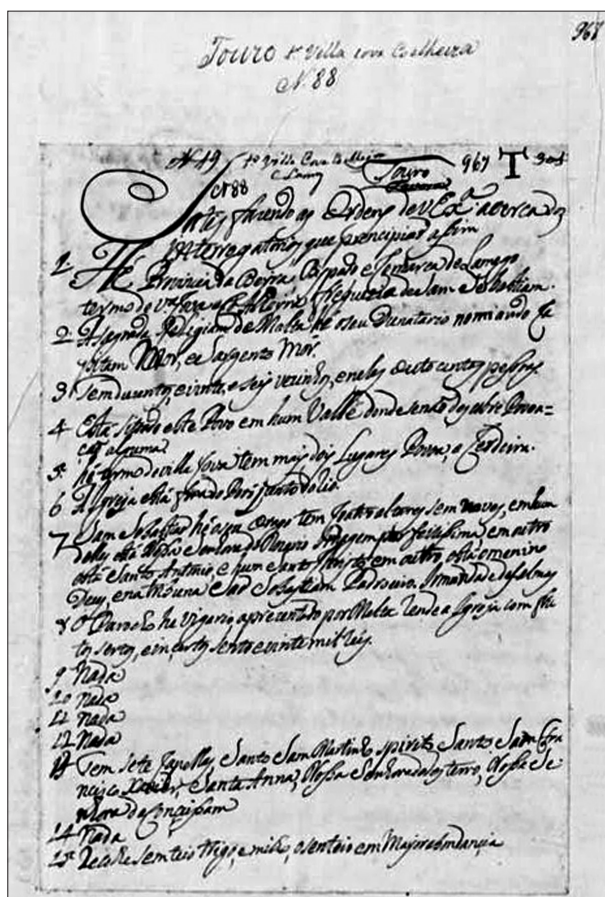 968
Touro tº Villa cova Coelheira
N. 88
Nº 49 tº Villa Cova Touro 967 T 304
ct 88
fazendo as Ordens de V Exª acerca dos
Interrogatorios que principiaõ assim
1 Hé Provincia da Beyra Bispado e Comarca de Lamego
termo de Freguezia de Sam Sebastiam.
2 A Sagrada Religiam de Malta hé o seu Donatario nomiando Ca
pitam Mór, e Sargento Mór.
3 Tem duzentos e vinte, e seis vezinhos, e nelles outo centos pessoas
4 Está sitiado este Povo em hum Valle donde senaõ descobre Povoa=
caõ alguma
5 hé termo de villa Cova tem mais dois Lugares Povoa, e Cerdeira.
6 A Igreja está fora do Povo junto delle
7 Sam Sebastiaõ hé o seu Orago tem quatro altares sem naves, em hum
delles está Nossa Senhora do Rozario Imagem perfeitissima, em outro
está Santo Antonio, e hum Santo Christo, em outro está o menino
Deus, e na tribuna Saõ Sebastiam Padroeiro. Irmandade das almas
8 O Parocho he vigario, aprezentado por Malta rende a Igreja com
certos, e incertos sento e vinte mil reis.
9 Nada
10 nada
11 nada
12 Nada
13 Tem sete Capellas, Santo Sam Martinho, Spirito Santo Sam Fran
cisco Xavier, Santa Anna, Nossa Senhora do Desterro, Nossa Se
nhora da Conceisam
14 Nada
15 Recolhe senteio trigo, e milho, o senteio em Major abundancia